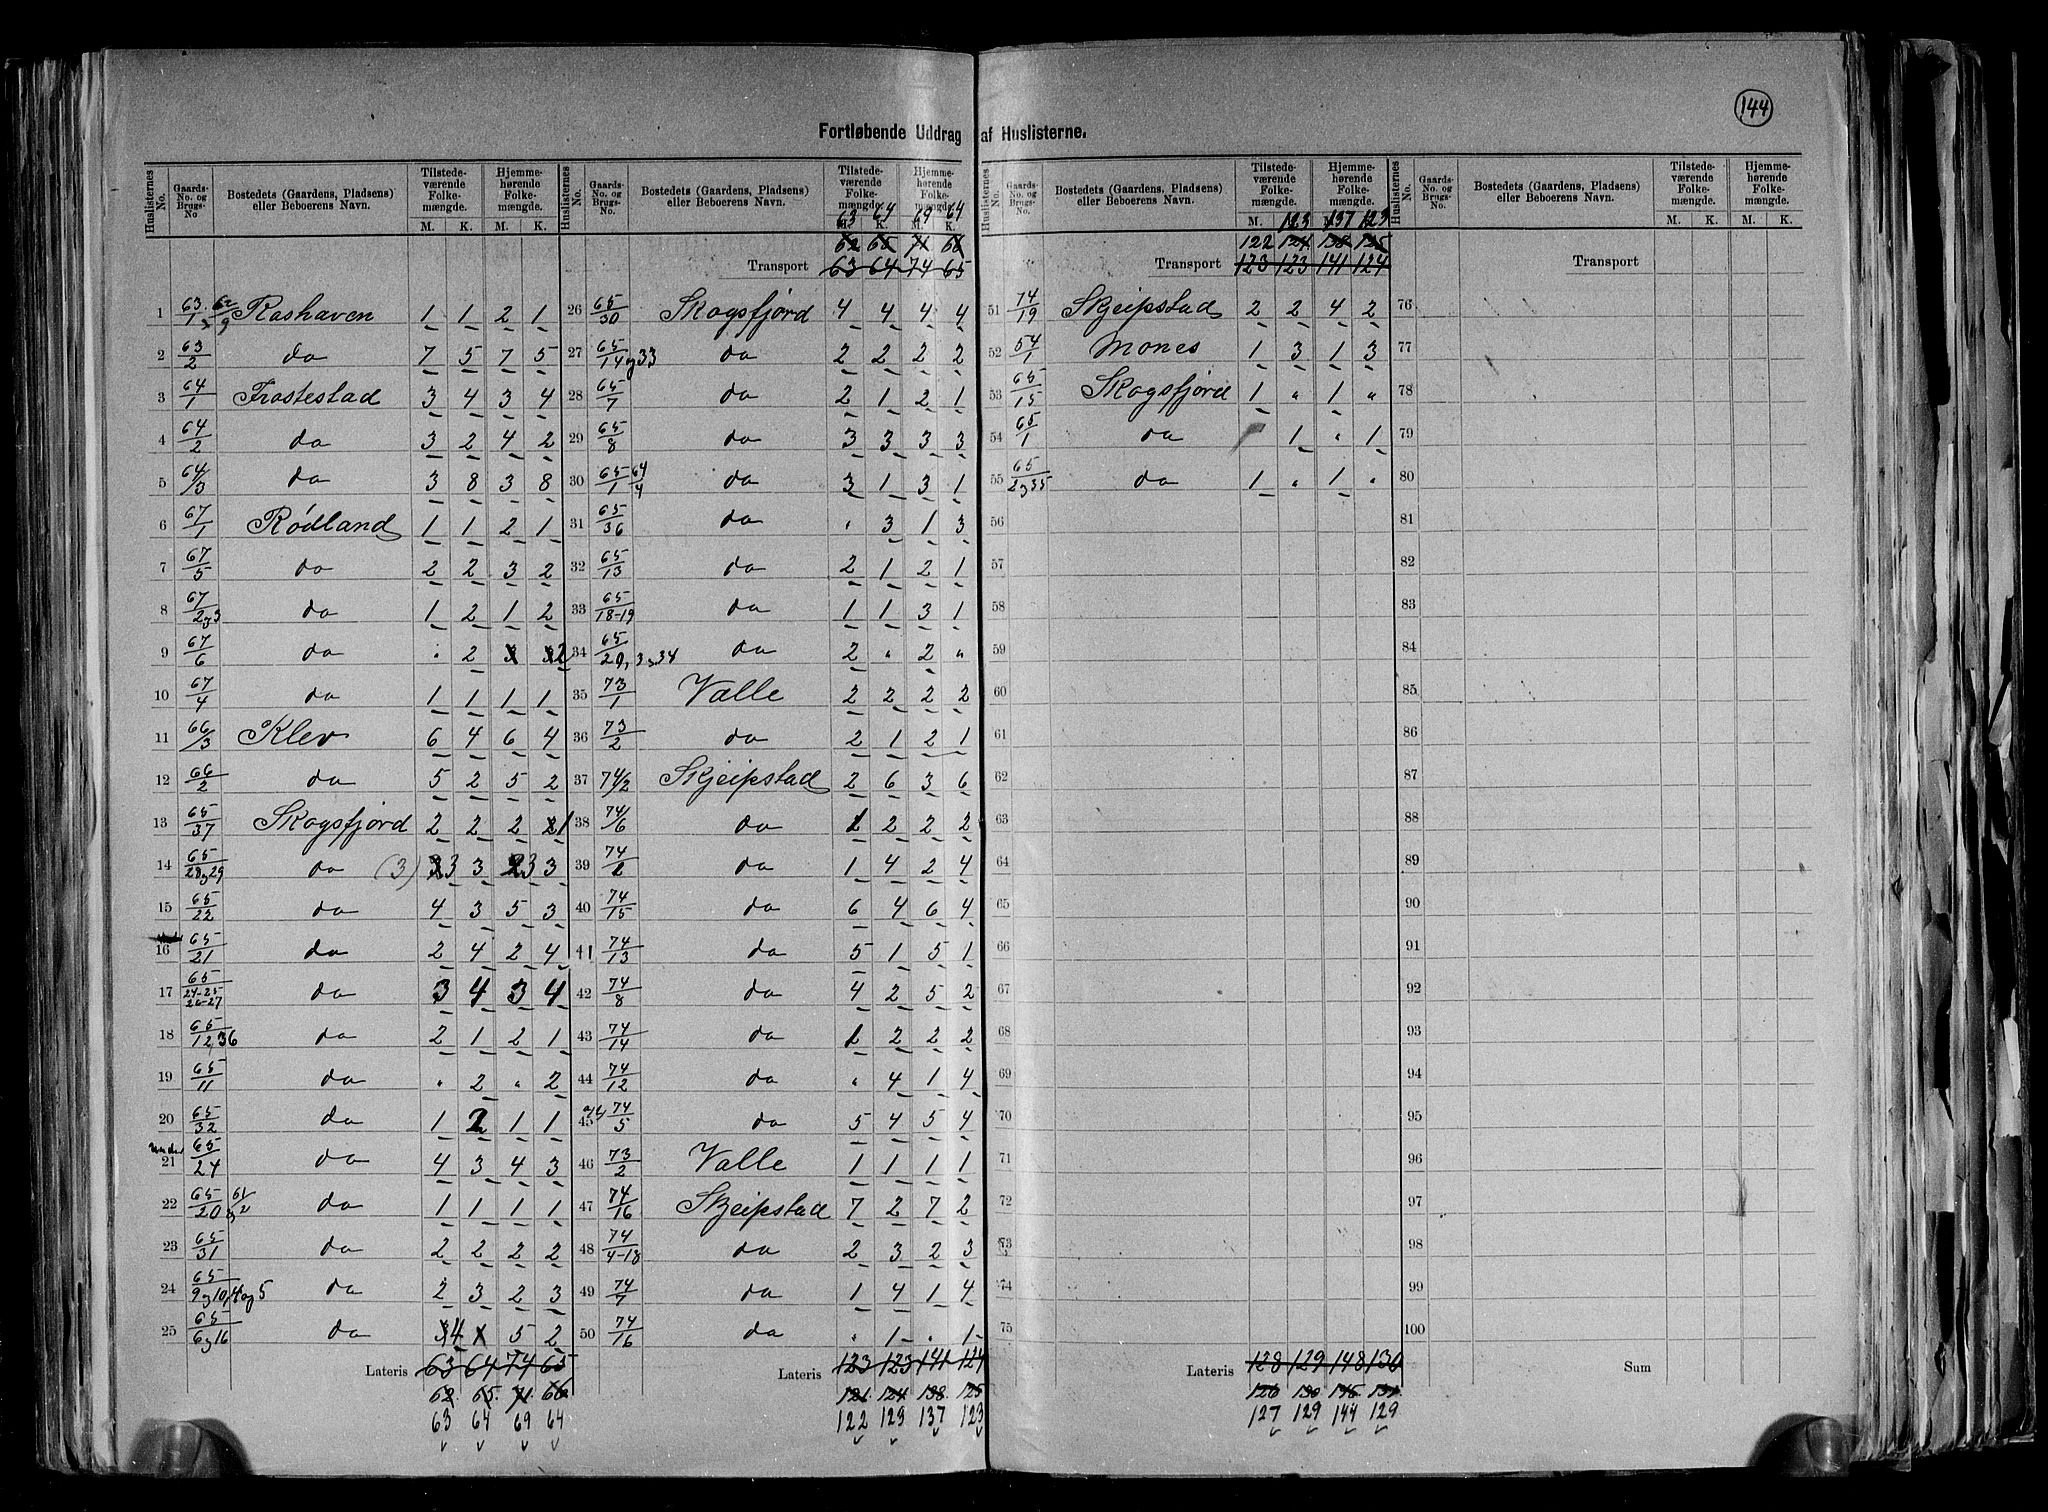 144
Fortløbende Uddrag af Huslisterne.
Huslisternes No. Gaards-No. og Brugs-No. Bostedets (Gaardens, Pladsens) eller Beboerens Navn. Tilstedeværende Folkemængde. M. K. Hjemmehørende Folkemængde. M. K.
1 63/1 62/9 Roshaven 1 1 2 1
2 63/2 do 7 5 7 5
3 64/1 Frostestad 3 4 3 4
4 64/2 do 3 2 4 2
5 64/3 do 3 8 3 8
6 67/1 Rødland 1 1 2 1
7 67/5 do 2 2 3 2
8 67/2og3 do 1 2 1 2
9 67/6 do " 2 3 3 2
10 67/4 do 1 1 1 1
11 66/3 Klev 6 4 6 4
12 66/2 do 5 2 5 2
13 65/37 Skogsfjord 2 2 2 2 1
14 65/28og29 do (3) 3 3 3 2 3 3
15 65/22 do 4 3 5 3
16 65/21 do 2 4 2 4
17 65/24-25 26-27 do 3 4 3 4
18 65/12,36 do 2 1 2 1
19 65/11 do " 2 " 2
20 65/32 do 1 2 1 1
21 65/24 do 4 3 4 3
22 65/20 og 61/2 do 1 1 1 1
23 65/31 do 2 2 2 2
24 65/9og10,4og5 do 2 3 2 3
25 65/6og16 do 3 4 x 5 2
Lateris 63 64 74 65
62 65 71 66
63 64 69 64
Huslisternes No. Gaards-No. og Brugs-No. Bostedets (Gaardens, Pladsens) eller Beboerens Navn. Tilstedeværende Folkemængde. M. K. Hjemmehørende Folkemængde. M. K.
63 64 69 64
62 65 71 66
Transport 63 64 74 65
26 65/30 Skogsfjord 4 4 4 4
27 65/14og33 do 2 2 2 2
28 65/7 do 2 1 2 1
29 65/8 do 3 3 3 3
30 65/1 64/4 do 3 1 3 1
31 65/36 do " 3 1 3
32 65/13 do 2 1 2 1
33 65/18-19 do 1 1 3 1
34 65/20,3og34 do 2 " 2 "
35 73/1 Valle 2 2 2 2
36 73/2 do 2 1 2 1
37 74/2 Skjeipstad 2 6 3 6
38 74/6 do 1 2 2 2
39 74/1 do 1 4 2 4
40 74/15 do 6 4 6 4
41 74/13 do 5 1 5 1
42 74/8 do 4 2 5 2
43 74/14 do 1 2 2 2
44 74/12 do " 4 1 4
45 74/5 do 5 4 5 4
46 73/2 Valle 1 1 1 1
47 74/16 Skjeipstad 7 2 7 2
48 74/4-18 do 2 3 2 3
49 74/7 do 1 4 1 4
50 74/16 do " 1 " 1
Lateris 123 123 141 124
121 124 138 125
122 123 137 123
Huslisternes No. Gaards-No. og Brugs-No. Bostedets (Gaardens, Pladsens) eller Beboerens Navn. Tilstedeværende Folkemængde. M. K. Hjemmehørende Folkemængde. M. K.
123 137 123
122 124 138 125
Transport 123 123 141 124
51 74/19 Skjeipstad 2 2 4 2
52 54/1 Mones 1 3 1 3
53 65/15 Skogsfjord 1 " 1 "
54 65/1 do 1 " 1
55 65/2og35 do 1 " 1 "
56
57
58
59
60
61
62
63
64
65
66
67
68
69
70
71
72
73
74
75
Lateris 128 129 148 130
126 130 145 131
127 129 144 129
Huslisternes No. Gaards-No. og Brugs-No. Bostedets (Gaardens, Pladsens) eller Beboerens Navn. Tilstedeværende Folkemængde. M. K. Hjemmehørende Folkemængde. M. K.
Transport
76
77
78
79
80
81
82
83
84
85
86
87
88
89
90
91
92
93
94
95
96
97
98
99
100
Sum